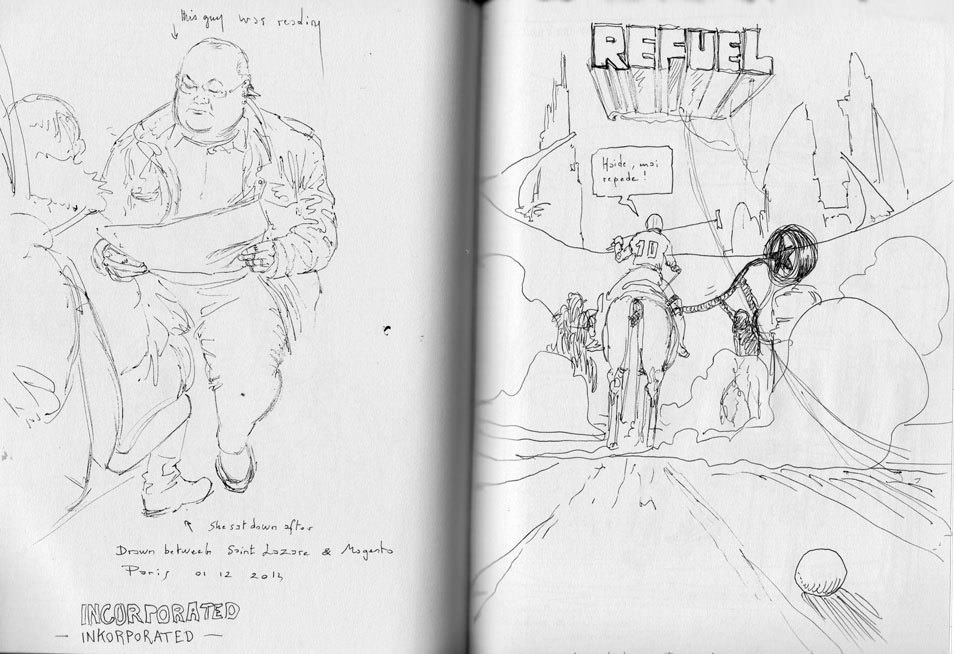 this guy was reading
she sat down after
Drawn between Saint Lazare & Magenta
Paris 01 12 2013
INCORPORATED
— INKORPORATED —
REFUEL
Haide, mai
repede!
10